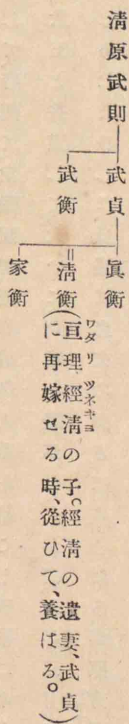 清原武則
武貞
武衡
眞衡
清衡
家衡
(亘理經清の子。經清の遺妻、武貞
に再嫁せる時、從ひて、養はる。)
ワダリツネキヨ